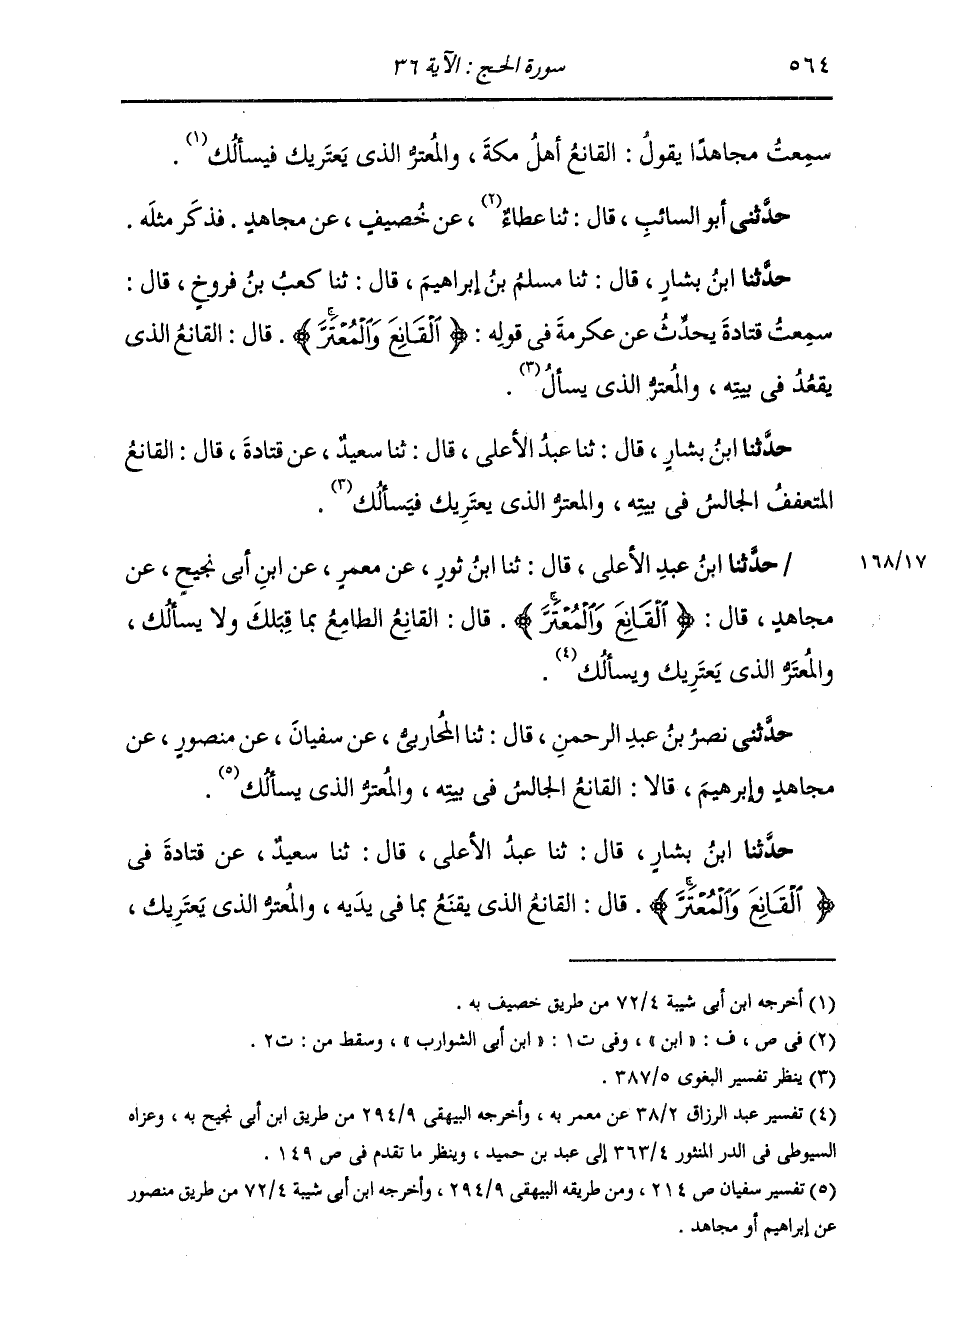 ٥٦٤ سورة الحج : الآية ٣٦
سمِعتُ مجاهدًا يقولُ : القانعُ أهلُ مكةَ ، والمُعترُّ الذى يَعتَريك فيسألُك(١) .
حدَّثنى أبو السائبِ ، قال : ثنا عطاءٌ(٢) ، عن خُصيفٍ ، عن مجاهدٍ . فذكَر مثلَه .
حدَّثنا ابنُ بشارٍ ، قال : ثنا مسلمُ بنُ إبراهيمَ ، قال : ثنا كعبُ بنُ فروخٍ ، قال :
سمِعتُ قتادةَ يحدِّثُ عن عكرمةَ فى قولِه : ﴿ ٱلْقَانِعَ وَٱلْمُعْتَرَّۚ ﴾ . قال : القانعُ الذى
يقعُدُ فى بيتِه ، والمُعترُّ الذى يسألُ(٣) .
حدَّثنا ابنُ بشارٍ ، قال : ثنا عبدُ الأعلى ، قال : ثنا سعيدٌ ، عن قتادةَ ، قال : القانعُ
المتعففُ الجالسُ فى بيتِه ، والمعترُّ الذى يعتَرِيك فيَسألُك(٣) .
/ حدَّثنا ابنُ عبدِ الأعلى ، قال : ثنا ابنُ ثورٍ ، عن معمرٍ ، عن ابنِ أبى نجيحٍ ، عن ١٦٨/١٧
مجاهدٍ ، قال : ﴿ ٱلْقَانِعَ وَٱلْمُعْتَرَّۚ ﴾ . قال : القانِعُ الطامِعُ بما قِبَلكَ ولا يسألُك ،
والمُعتَرُّ الذى يَعتَرِيك ويسألُك(٤) .
حدَّثنى نصرُ بنُ عبدِ الرحمنِ ، قال : ثنا المُحاربىُّ ، عن سفيانَ ، عن منصورٍ ، عن
مجاهدٍ وإبرهيمَ ، قالا : القانعُ الجالسُ فى بيتِه ، والمُعترُّ الذى يسألُك(٥) .
حدَّثنا ابنُ بشارٍ ، قال : ثنا عبدُ الأعلى ، قال : ثنا سعيدٌ ، عن قتادةَ فى
﴿ ٱلْقَانِعَ وَٱلْمُعْتَرَّۚ ﴾ . قال : القانعُ الذى يقنَعُ بما فى يدَيه ، والمُعترُّ الذى يَعتَرِيك ،
(١) أخرجه ابن أبى شيبة ٧٢/٤ من طريق خصيف به .
(٢) فى ص ، ف : « ابن » ، وفى ت١ : « ابن أبى الشوارب » ، وسقط من : ت٢ .
(٣) ينظر تفسير البغوى ٣٨٧/٥ .
(٤) تفسير عبد الرزاق ٣٨/٢ عن معمر به ، وأخرجه البيهقى ٢٩٤/٩ من طريق ابن أبى نجيح به ، وعزاه
السيوطى فى الدر المنثور ٣٦٣/٤ إلى عبد بن حميد ، وينظر ما تقدم فى ص ١٤٩ .
(٥) تفسير سفيان ص ٢١٤ ، ومن طريقه البيهقى ٢٩٤/٩ ، وأخرجه ابن أبى شيبة ٧٢/٤ من طريق منصور
عن إبراهيم أو مجاهد .